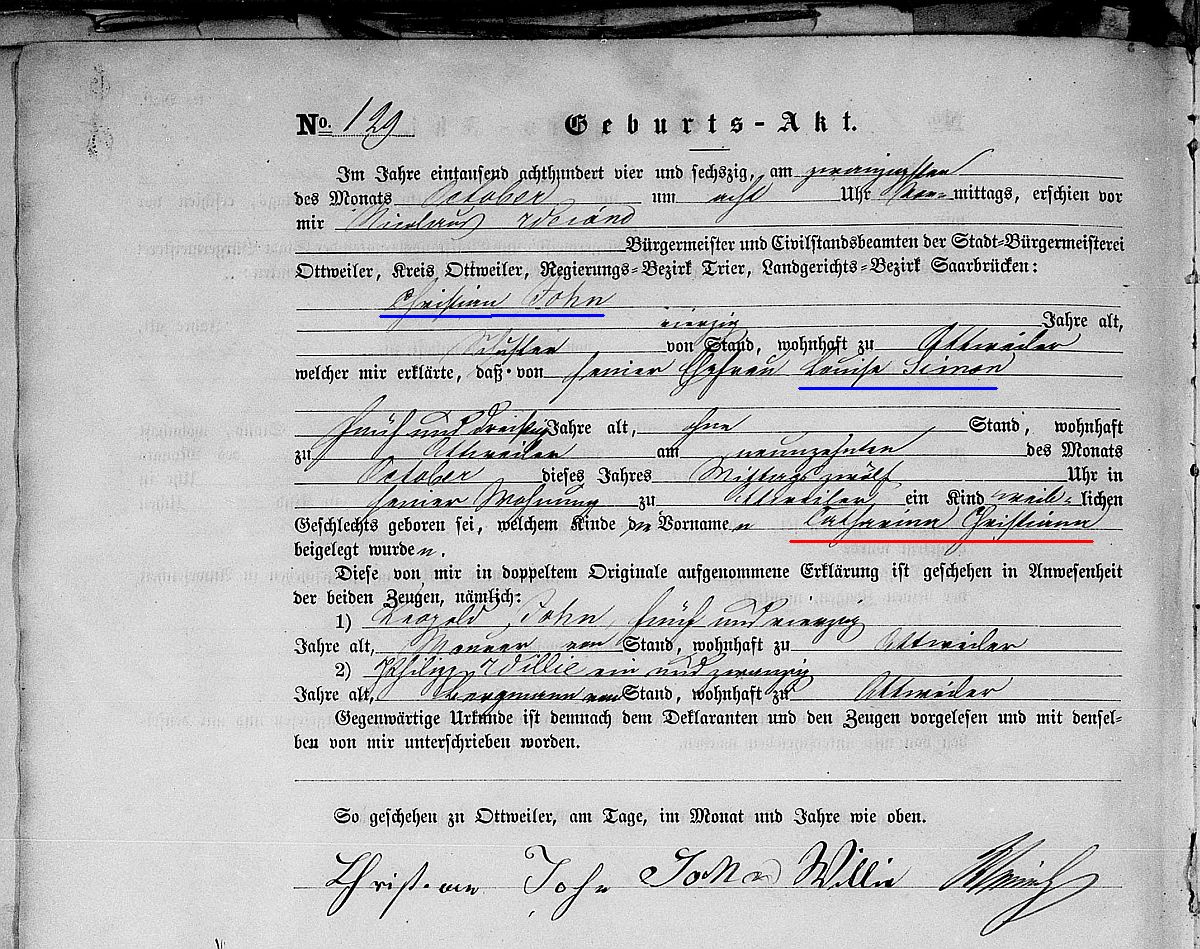 No. 129 Geburts-Akt.
Im Jahre eintausend achthundert vier und sechszig, am zwanzigsten
des Monats October um acht Uhr Vor-mittags, erschien vor
mir Nicolaus
Bürgermeister und Civilstandsbeamten der Stadt-Bürgermeisterei
Ottweiler, Kreis Ottweiler, Regierungs-Bezirk Trier, Landgerichts-Bezirk Saarbrücken:
Christian John
vierzig Jahre alt,
Schuster von Stand, wohnhaft zu Ottweiler
welcher mir erklärte, daß von seiner Ehefrau Louise Simon
fünf und dreißig Jahre alt, ohne Stand, wohnhaft
zu Ottweiler am neunzehnten des Monats
October dieses Jahres Mittags zwölf Uhr in
seiner Wohnung zu Ottweiler ein Kind weib-lichen
Geschlechts geboren sei, welchem Kinde die Vornamen Catharina Christiana
beigelegt wurden.
Diese von mir in doppeltem Originale aufgenommene Erklärung ist geschehen in Anwesenheit
der beiden Zeugen, nämlich:
1) Leopold John, fünf und vierzig
Jahre alt, Maurer von Stand, wohnhaft zu Ottweiler
2) Philipp Willie ein und zwanzig
Jahre alt, Bergmann von Stand, wohnhaft zu Ottweiler
Gegenwärtige Urkunde ist demnach dem Deklaranten und den Zeugen vorgelesen und mit densel-
ben von mir unterschrieben worden.
So geschehen zu Ottweiler, am Tage, im Monat und Jahre wie oben.
Christian John John Willie